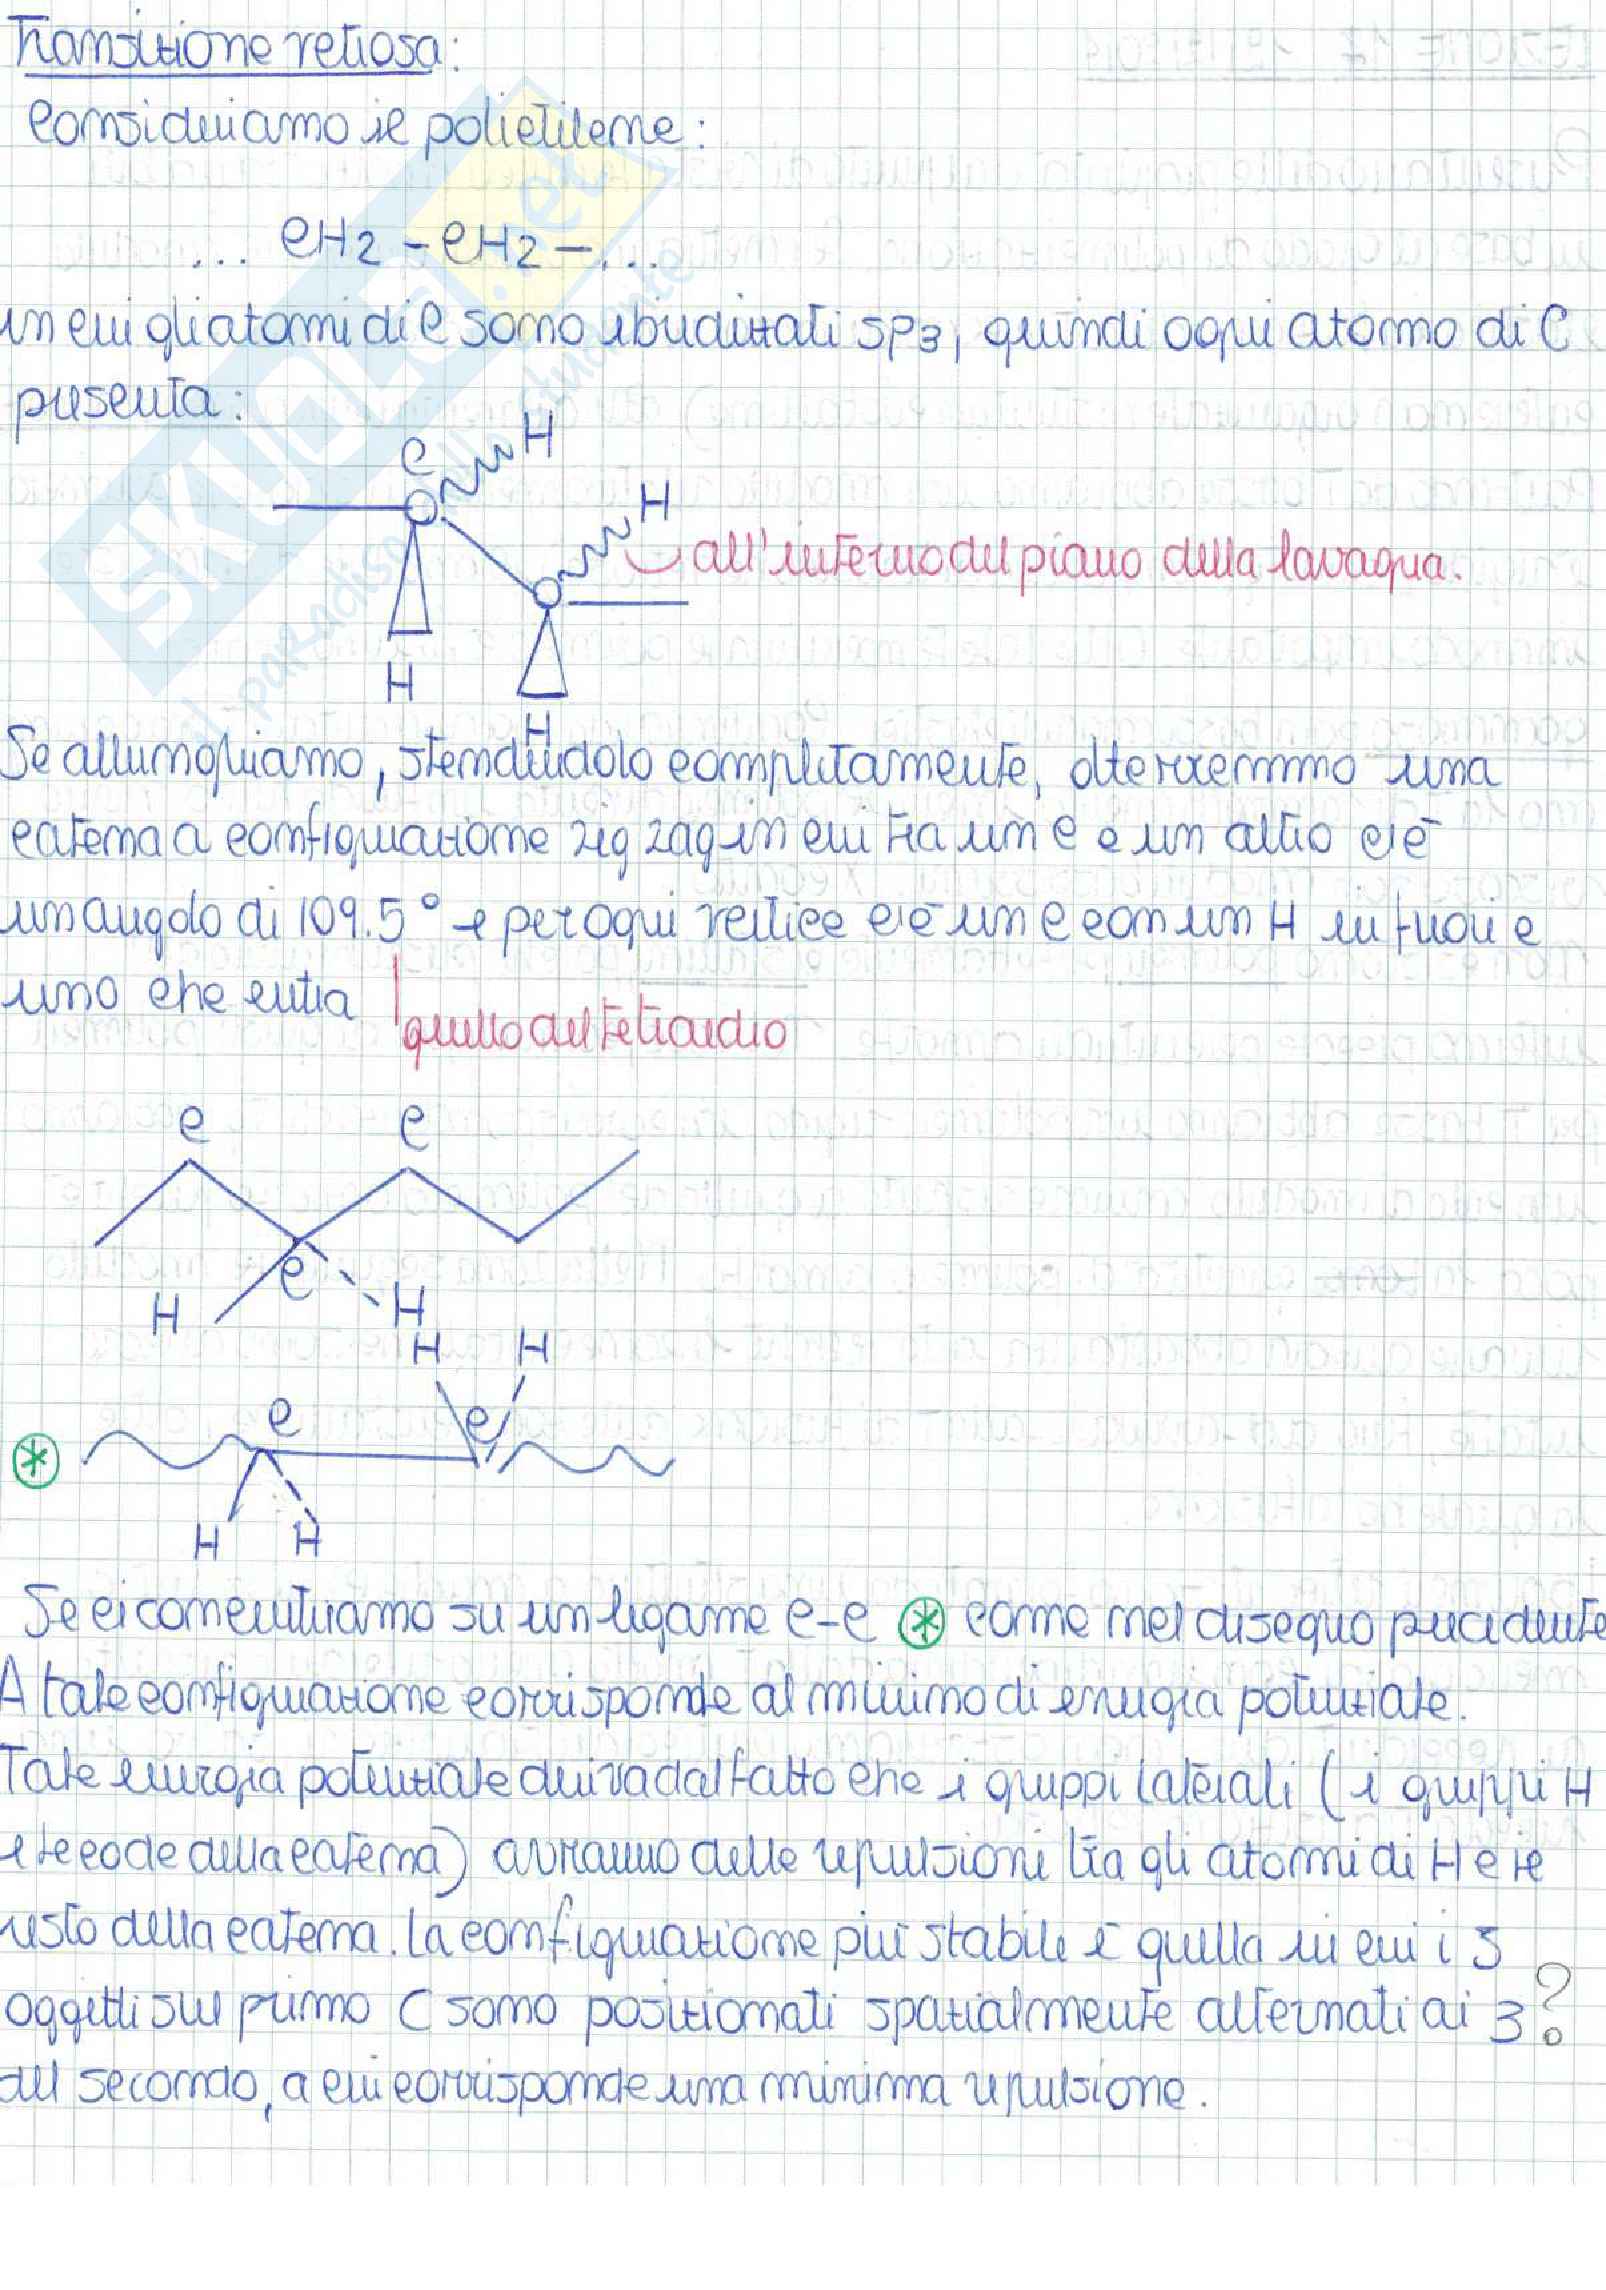 Transizione vetrosa:
Consideriamo il polietilene:
... CH2 - CH2 - ...
in cui gli atomi di C sono ibridizzati sp3, quindi ogni atomo di C
presenta:
C
H
H
all'interno del piano della lavagna.
H
H
Se allunghiamo, stendendolo completamente, otterremmo una
catena a configurazione zig zag in cui tra un C e un altro c'è
un angolo di 109.5° e per ogni vertice c'è un C con un H in fuori e
uno che entra
quello del tetraedro
C C
C
H H
H H
C C
*
H H
Se ci concentriamo su un legame C-C * come nel disegno precedente
A tale configurazione corrisponde al minimo di energia potenziale.
Tale energia potenziale deriva dal fatto che i gruppi laterali (i gruppi H
e le code della catena) avranno delle repulsioni tra gli atomi di H e il
resto della catena. La configurazione più stabile è quella in cui i 3
oggetti sul primo C sono posizionati spazialmente alternati ai 3 ?
del secondo, a cui corrisponde una minima repulsione.
SKUOLA.net
il paradiso dello studente